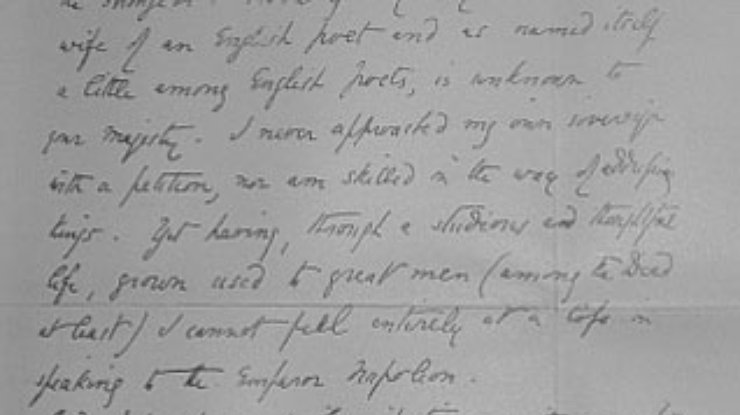 wife of an English poet and as named itself
a little among English poets, is unknown to
your majesty. I never approached my own sovereign
with a petition, nor am skilled in the way of addressing
kings. Yet having, through a studious and thoughtful
life, grown used to great men (among the Dead
at least) I cannot feel entirely at a loss in
speaking to the Emperor Napoleon.